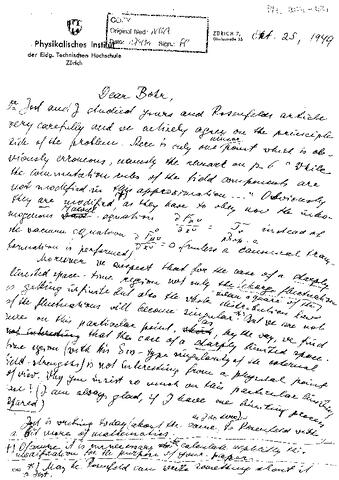 COPY
Original filed: NBA
Physikalisches Institut
der Eidg. Technischen Hochschule
Zürich
ZÜRICH 7,
Gloriastraße 35
Okt. 25, 1949
Dear Bohr,
Jost and I studied yours and Rosenfelds article
very carefully and we entirely agree on the principle
side of the problem. There is only one minor point which is ob-
viously erroneous, namely the remark on p. 6 "While
the commutation rules of the field components are
not modified in this approximation ..." Obviously
they are modified, as they have to obey now the inho-
mogeneous equation instead of
the vacuum equation = 0 (unless a canonical trans-
formation is performed).
Moreover we suspect that for the case of a sharply
limited space-time region not only the charge fluctuation
is getting infinite but also the whole distribution law
of the fluctuations will become singular. But we are not
sure on this particular point. By the way, we find
not interesting that the case of a sharply limited space-
time region (with singularity of the external
field-strengths) is not interesting from a physical point
of view. Why you insist so much on this particular limiting
case? (I am always glad, if I have one limiting process
spared)
Jost is writing today about the same to Rosenfeld with
bit more of mathematics.
Of course it is unnecessary to calculate explicitly this
modification for the purpose of your paper.
May be Rosenfeld can write something about it